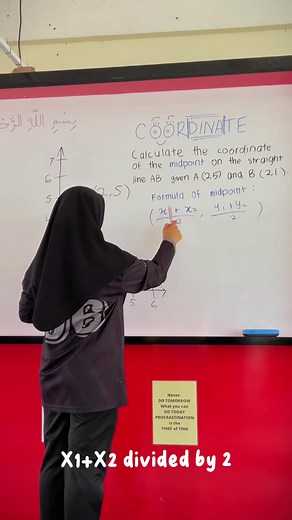 بسم الله الرّحـ
COORDINATE
Calculate the coordinate
of the midpoint on the straight
line AB given A (2,5) and B (2,1).
Formula of midpoint :
( x1 + x2 / 2 , y1 + y2 / 2 )
7
6
5
(2,5)
5 6
Never
DO TOMORROW
What you can
DO TODAY
PROCRASTINATION
is the
THIEF of TIME
X1+X2 divided by 2